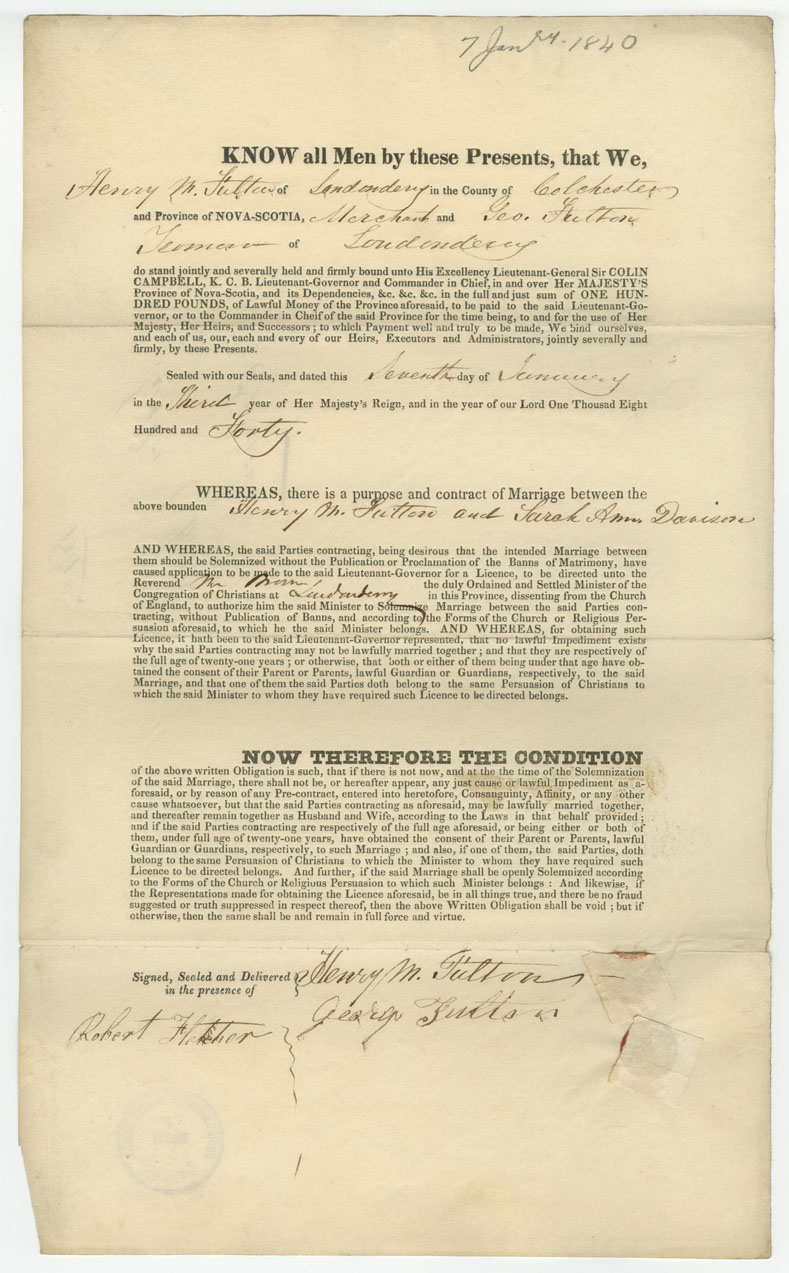 7 Jany. 1840
KNOW all Men by these Presents, that We,
Henry M. Fulton of Londonderry in the County of Colchester
and Province of NOVA-SCOTIA, Merchant and Geo. Fulton
Yeoman of Londonderry
do stand jointly and severally held and firmly bound unto His Excellency Lieutenant-General Sir COLIN
CAMPBELL, K. C. B. Lieutenant-Governor and Commander in Chief, in and over Her MAJESTY'S
Province of Nova-Scotia, and its Dependencies, &c. &c. &c. in the full and just sum of ONE HUN-
DRED POUNDS, of Lawful Money of the Province aforesaid, to be paid to the said Lieutenant-Go-
vernor, or to the Commander in Cheif of the said Province for the time being, to and for the use of Her
Majesty, Her Heirs, and Successors ; to which Payment well and truly to be made, We bind ourselves,
and each of us, our, each and every of our Heirs, Executors and Administrators, jointly severally and
firmly, by these Presents.
Sealed with our Seals, and dated this Seventh day of January
in the Third year of Her Majesty's Reign, and in the year of our Lord One Thousad Eight
Hundred and Forty.
WHEREAS, there is a purpose and contract of Marriage between the
above bounden Henry M. Fulton and Sarah Ann Davison
AND WHEREAS, the said Parties contracting, being desirous that the intended Marriage between
them should be Solemnized without the Publication or Proclamation of the Banns of Matrimony, have
caused application to be made to the said Lieutenant-Governor for a Licence, to be directed unto the
Reverend Mr Brown the duly Ordained and Settled Minister of the
Congregation of Christians at Londonderry in this Province, dissenting from the Church
of England, to authorize him the said Minister to Solemnize Marriage between the said Parties con-
tracting, without Publication of Banns, and according to the Forms of the Church or Religious Per-
suasion aforesaid, to which he the said Minister belongs. AND WHEREAS, for obtaining such
Licence, it hath been to the said Lieutenant-Governor represented, that no lawful Impediment exists
why the said Parties contracting may not be lawfully married together ; and that they are respectively of
the full age of twenty-one years ; or otherwise, that both or either of them being under that age have ob-
tained the consent of their Parent or Parents, lawful Guardian or Guardians, respectively, to the said
Marriage, and that one of them the said Parties doth belong to the same Persuasion of Christians to
which the said Minister to whom they have required such Licence to be directed belongs.
NOW THEREFORE THE CONDITION
of the above written Obligation is such, that if there is not now, and at the the time of the Solemnization
of the said Marriage, there shall not be, or hereafter appear, any just cause or lawful Impediment as a-
foresaid, or by reason of any Pre-contract, entered into heretofore, Consanguinty, Affinity, or any other
cause whatsoever, but that the said Parties contracting as aforesaid, may be lawfully married together,
and thereafter remain together as Husband and Wife, according to the Laws in that behalf provided ;
and if the said Parties contracting are respectively of the full age aforesaid, or being either or both of
them, under full age of twenty-one years, have obtained the consent of their Parent or Parents, lawful
Guardian or Guardians, respectively, to such Marriage ; and also, if one of them, the said Parties, doth
belong to the same Persuasion of Christians to which the Minister to whom they have required such
Licence to be directed belongs. And further, if the said Marriage shall be openly Solemnized according
to the Forms of the Church or Religious Persuasion to which such Minister belongs : And likewise, if
the Representations made for obtaining the Licence aforesaid, be in all things true, and there be no fraud
suggested or truth suppressed in respect thereof, then the above Written Obligation shall be void ; but if
otherwise, then the same shall be and remain in full force and virtue.
Signed, Sealed and Delivered Henry M. Fulton
in the presence of
George Fulton
Robert Fletcher